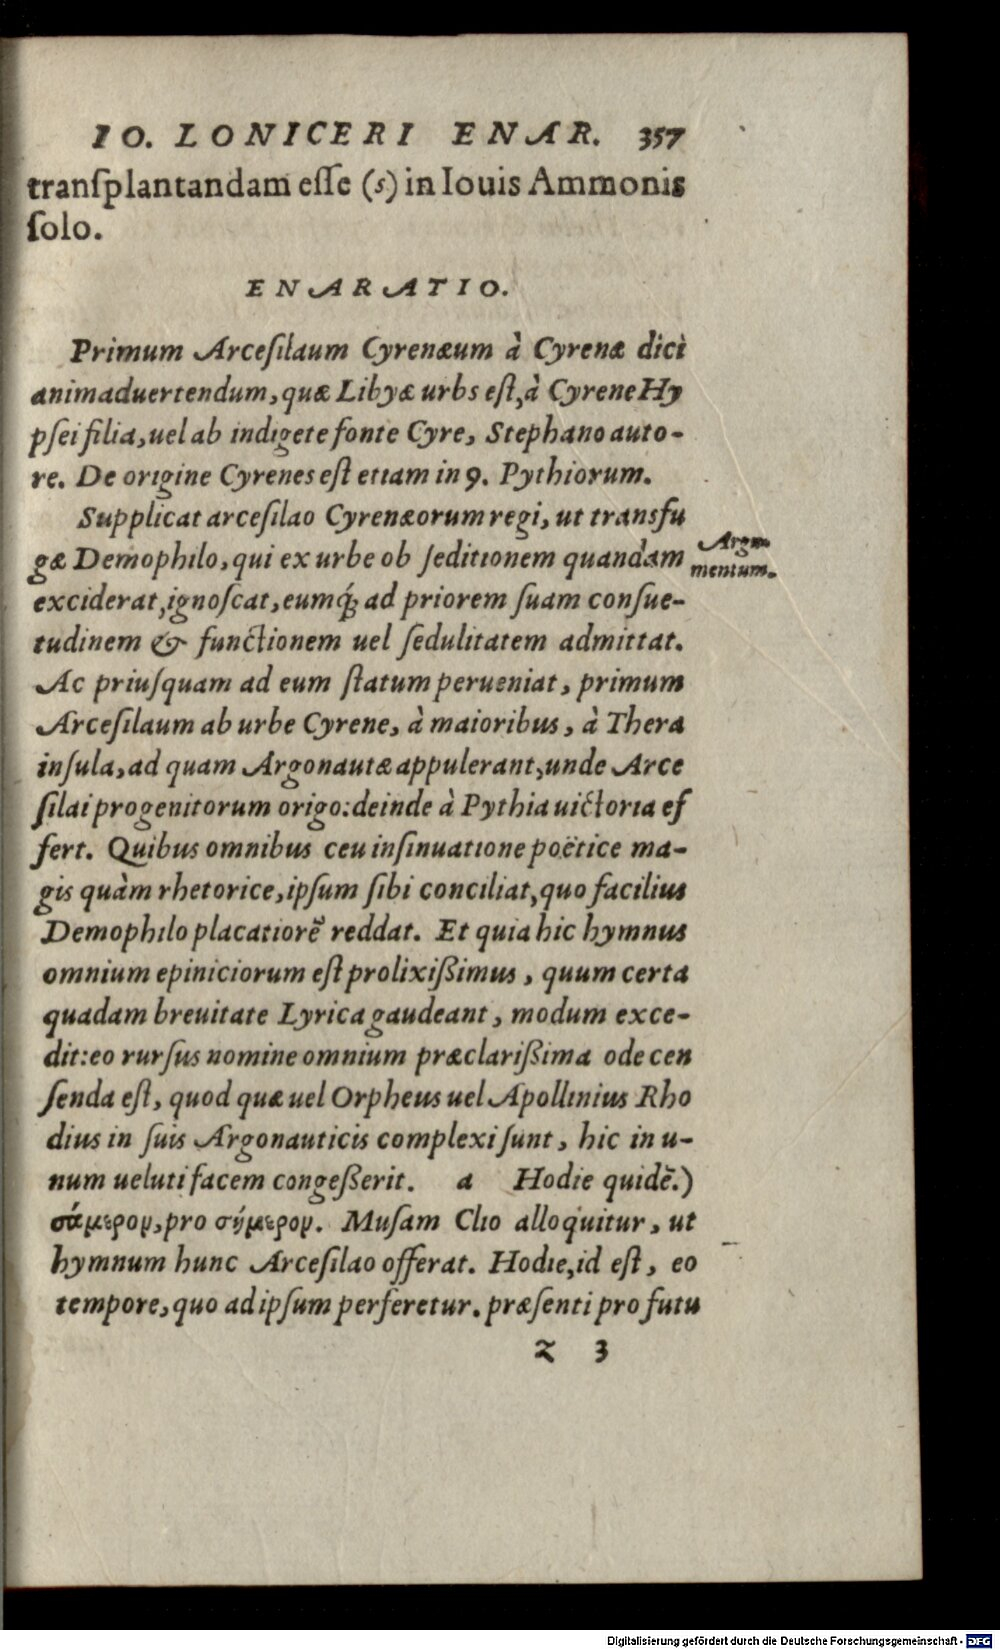 IO. LONICERI ENAR. 357
tranſplantandam eſſe (s) in Iouis Ammonis
ſolo.
ENARATIO.
Primum Arceſilaum Cyrenæum à Cyrenæ dici
animaduertendum, quæ Libyæ urbs eſt, à Cyrene Hy
pſei filia, uel ab indigete fonte Cyre, Stephano auto-
re. De origine Cyrenes eſt etiam in 9. Pythiorum.
Supplicat arceſilao Cyrenæorum regi, ut transfu
gæ Demophilo, qui ex urbe ob ſeditionem quandam
Argu
mentum.
exciderat, ignoſcat, eumq́ꝫ ad priorem ſuam conſue-
tudinem & functionem uel ſedulitatem admittat.
Ac priuſquam ad eum ſtatum perueniat, primum
Arceſilaum ab urbe Cyrene, à maioribus, à Thera
inſula, ad quam Argonautæ appulerant, unde Arce
ſilai progenitorum origo: deinde à Pythia uictoria ef
fert. Quibus omnibus ceu inſinuatione poëtice ma-
gis quàm rhetorice, ipſum ſibi conciliat, quo facilius
Demophilo placatiorẽ reddat. Et quia hic hymnus
omnium epiniciorum eſt prolixißimus, quum certa
quadam breuitate Lyrica gaudeant, modum exce-
dit: eo rurſus nomine omnium præclarißima ode cen
ſenda eſt, quod quæ uel Orpheus uel Apollinius Rho
dius in ſuis Argonauticis complexi ſunt, hic in u-
num ueluti facem congeßerit. a Hodie quidẽ.)
σάμερον, pro σήμερον. Muſam Clio alloquitur, ut
hymnum hunc Arceſilao offerat. Hodie, id eſt, eo
tempore, quo ad ipſum perferetur. præſenti pro futu
z 3
Digitalisierung gefördert durch die Deutsche Forschungsgemeinschaft - DFG